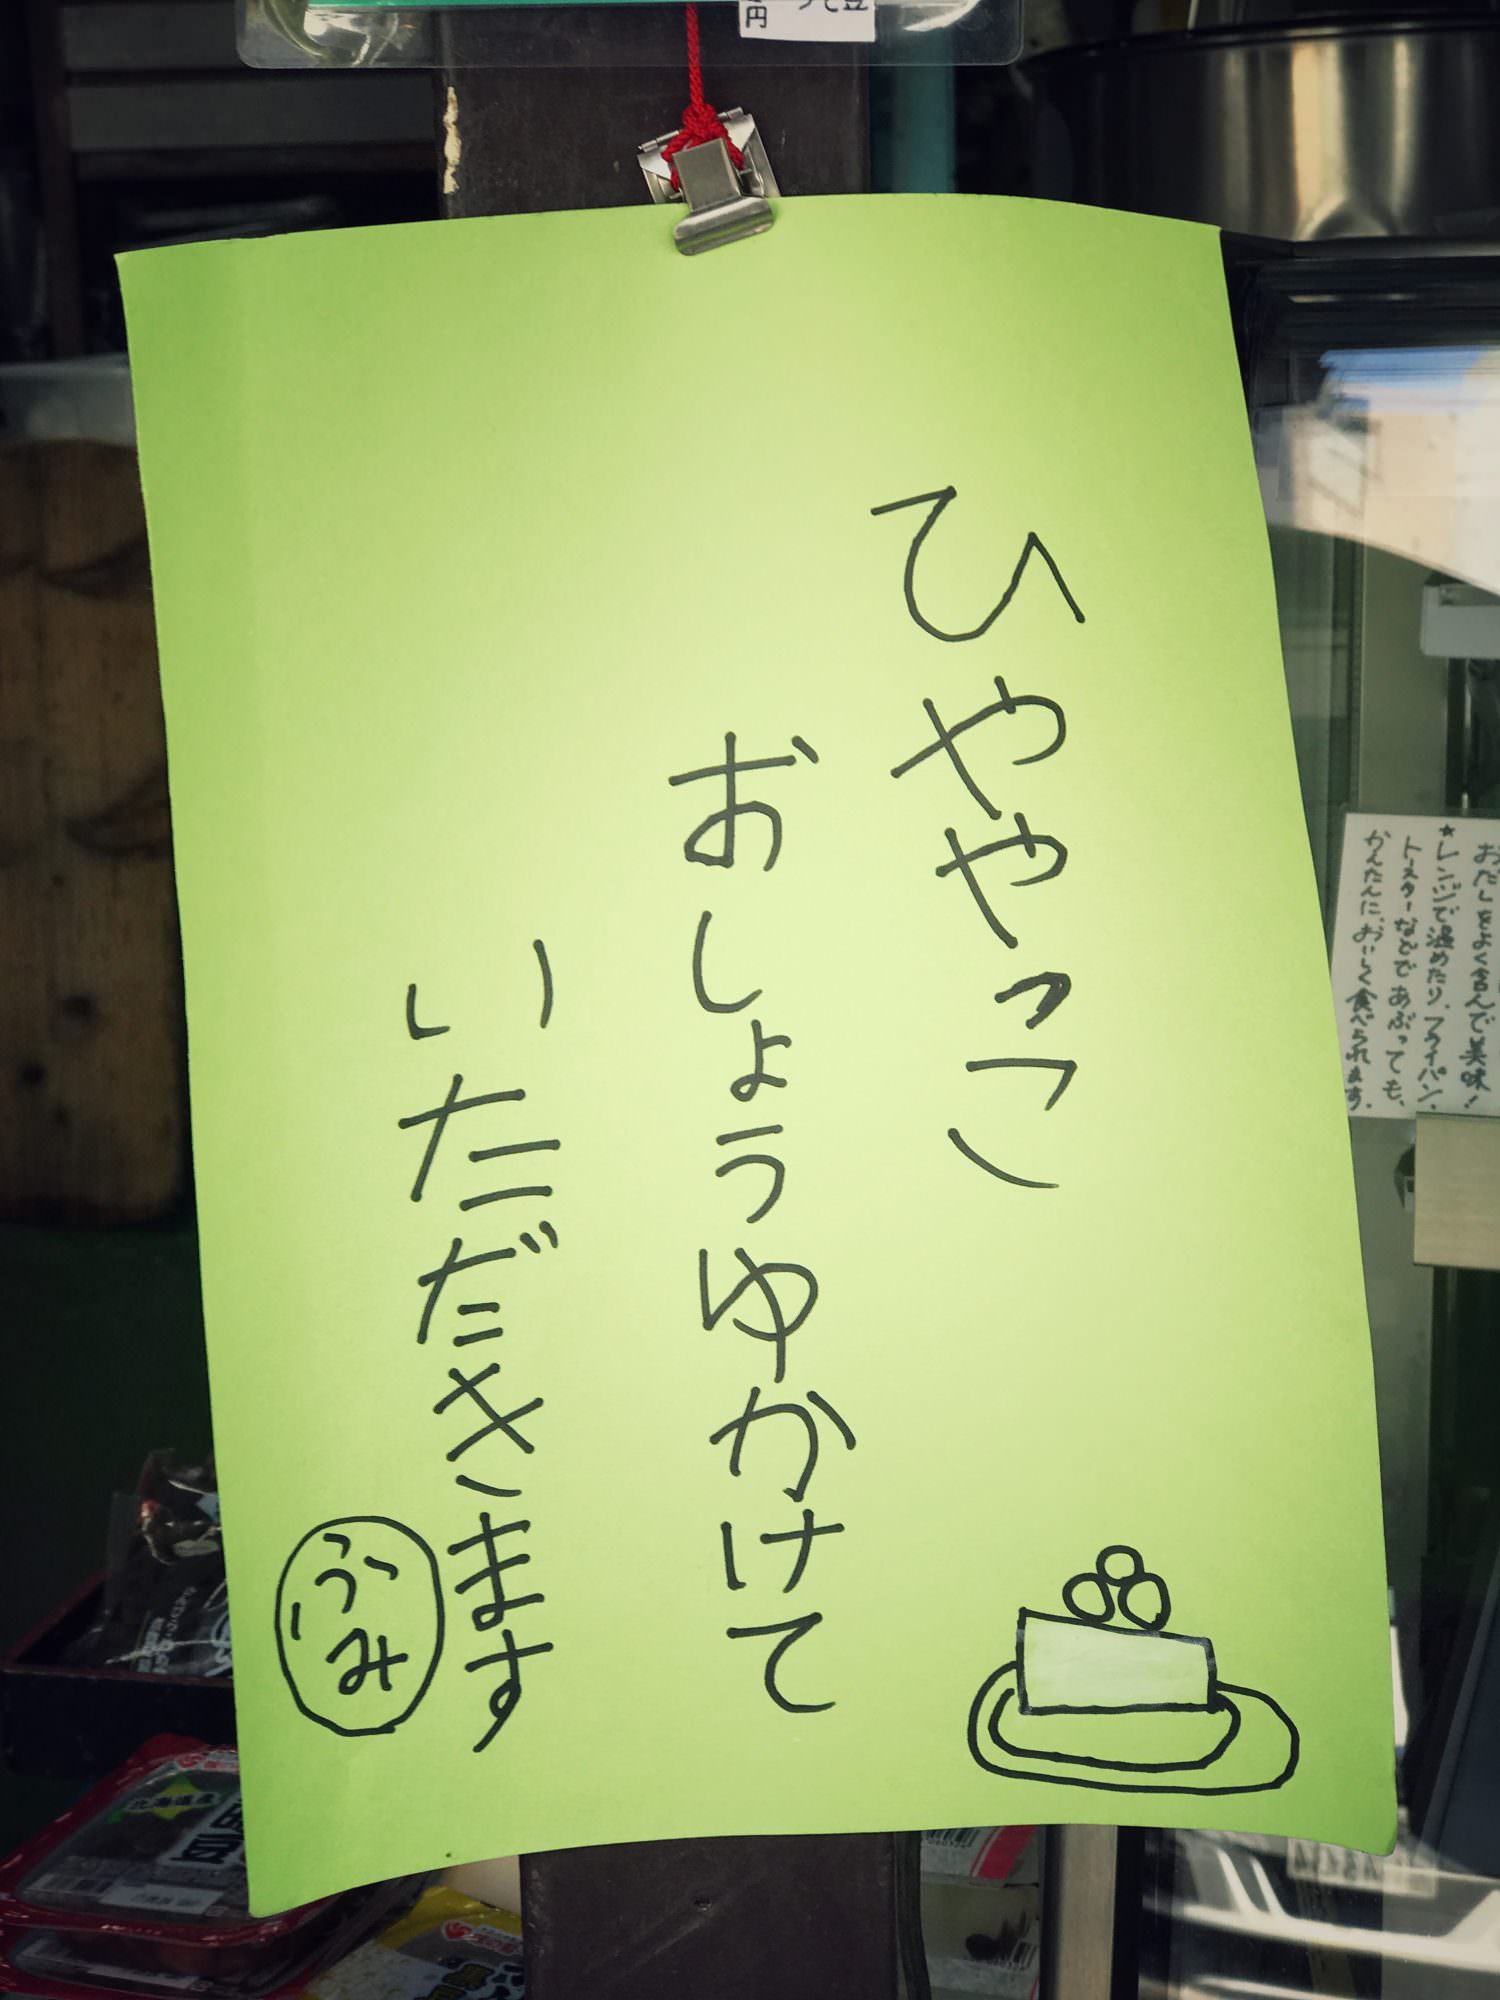 ひややっこ
おしょうゆかけて
いただきます
ふみ
おだしをよく含んで美味!
★レンジで温めたり、フライパン、
トースターなどであぶっても、
かんたんに、おいしく食べられます。
円
北海道産